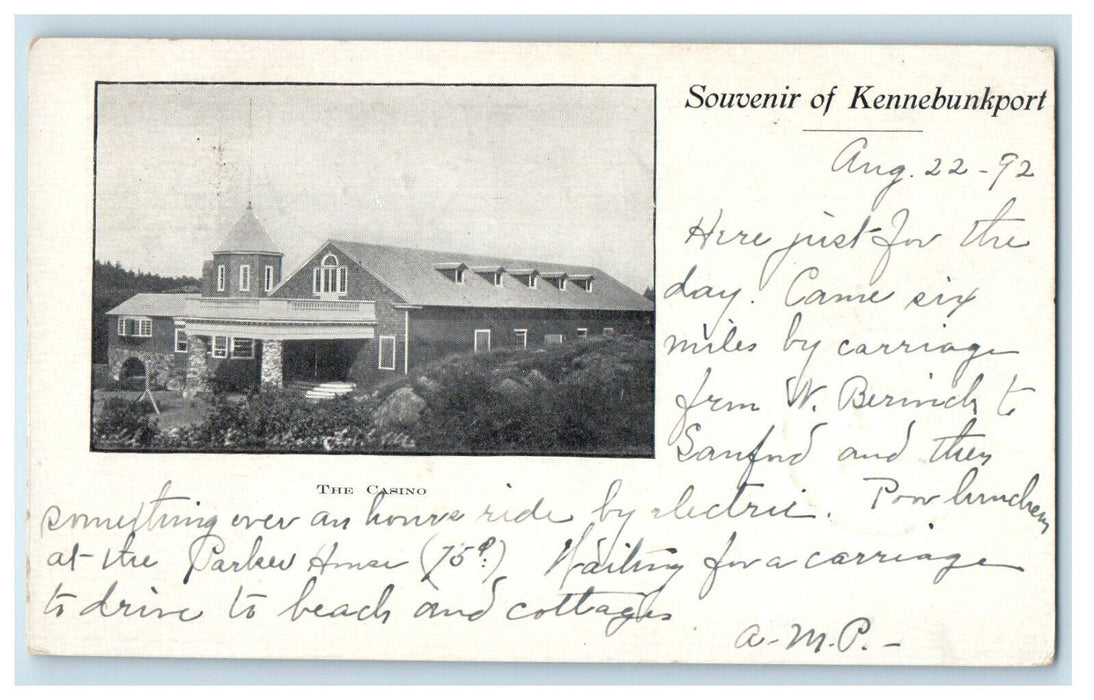 Souvenir of Kennebunkport
Aug. 22-92
Here just for the
day. Came six
miles by carriage
from W. Berwick to
Sanford and then
something over an hours ride by electric. Poor luncheon
at the Parker House (75¢)  Waiting for a carriage
to drive to beach and cottages.
A.M.P.-
The Casino